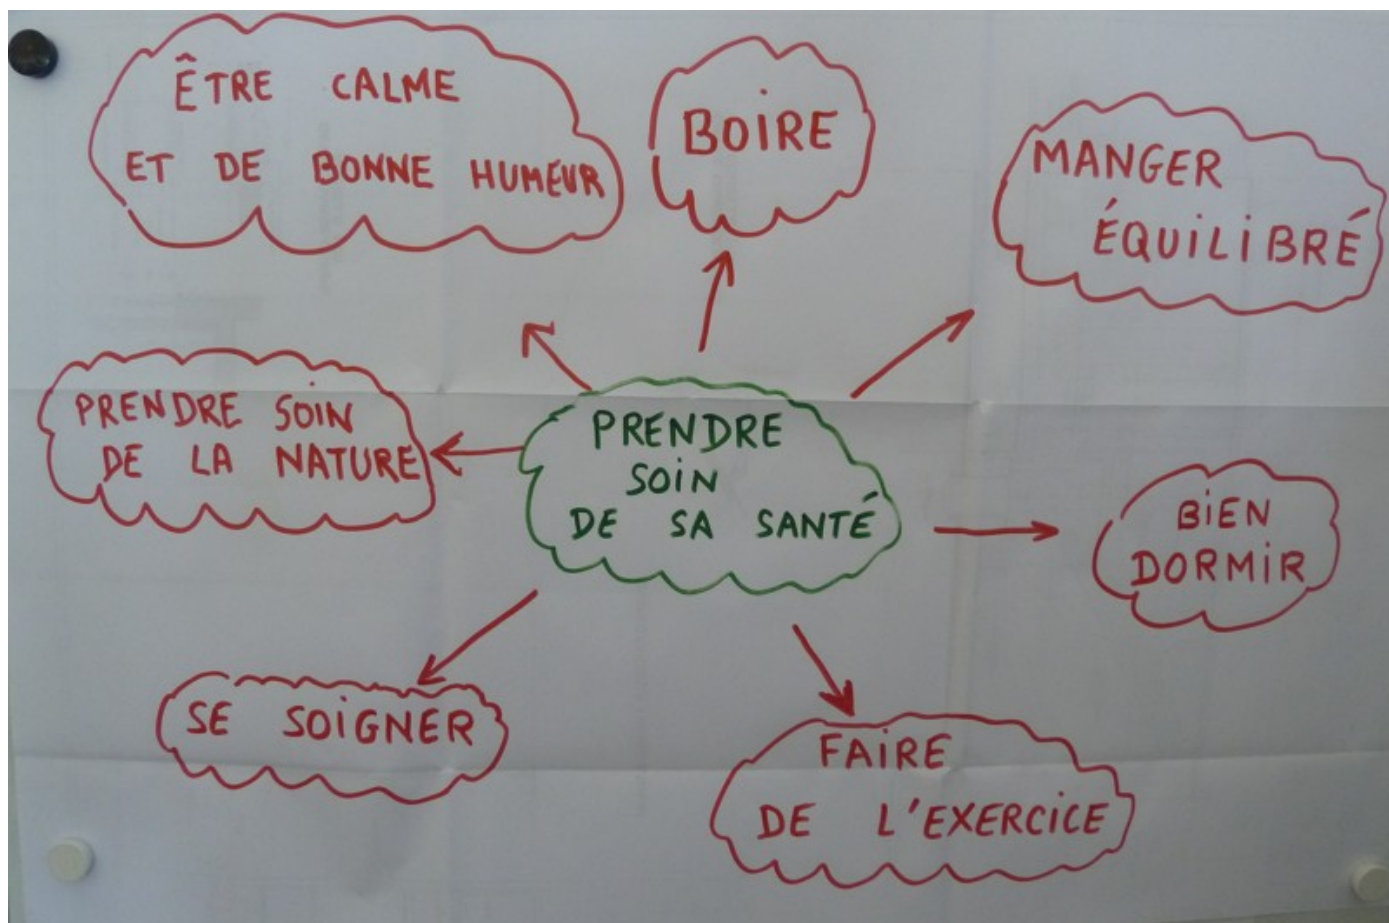 ÊTRE CALME
ET DE BONNE HUMEUR
BOIRE
MANGER
ÉQUILIBRÉ
PRENDRE SOIN
DE LA NATURE
PRENDRE
SOIN
DE SA SANTÉ
BIEN
DORMIR
SE SOIGNER
FAIRE
DE L'EXERCICE